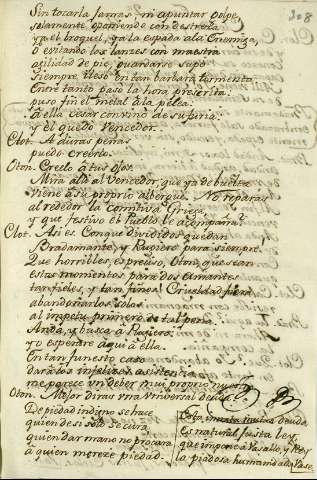 208
Sin tocarla jamas, ni apuntar golpe,
solamente oponiendo con destreza
ya el broquel, ya la espada a la Enemiga,
o evitando los lanzes con maestra
agilidad de pie, guardarse supo
siempre ileso en tan barbara tormenta.
Entre tanto pasó la hora prescrita:
puso fin el metal a la pelea:
a ella Cesar convino de su furia:
y él quedó Vencedor.
Clot. A duras penas
puedo creerlo.
Oton. Creelo a tus ojos.
Mira allá al Vencedor, que ya de buelta
viene a su proprio albergue. No reparas
al rededor la comitiva Griega,
y que festivo el Pueblo le acompaña?
Clot. Asi es. Conque divididos quedan
Bradamante, y Rugiero para siempre.
Que horribles, es preciso, Oton, que sean
estos momentos para dos amantes
tan fieles, y tan finos! Crueldad fuera
abandonarlos solos
al impetu primero de tal pena.
Anda, y busca a Rugiero:
yo esperaré aqui a ella.
En tan funesto caso
dar a los infelizes asistencia
me parece un deber mui proprio nuestro.
Oton. Mejor diras una universal deuda.
De piedad indigno se hace
quien de si solo se cura,
quien dar mano no procura
a quien mereze piedad.
Esta innata mutua deuda
Es natural justa ley,
que impone a Vasallo, y Rey
la piadosa humanidad. Vase.